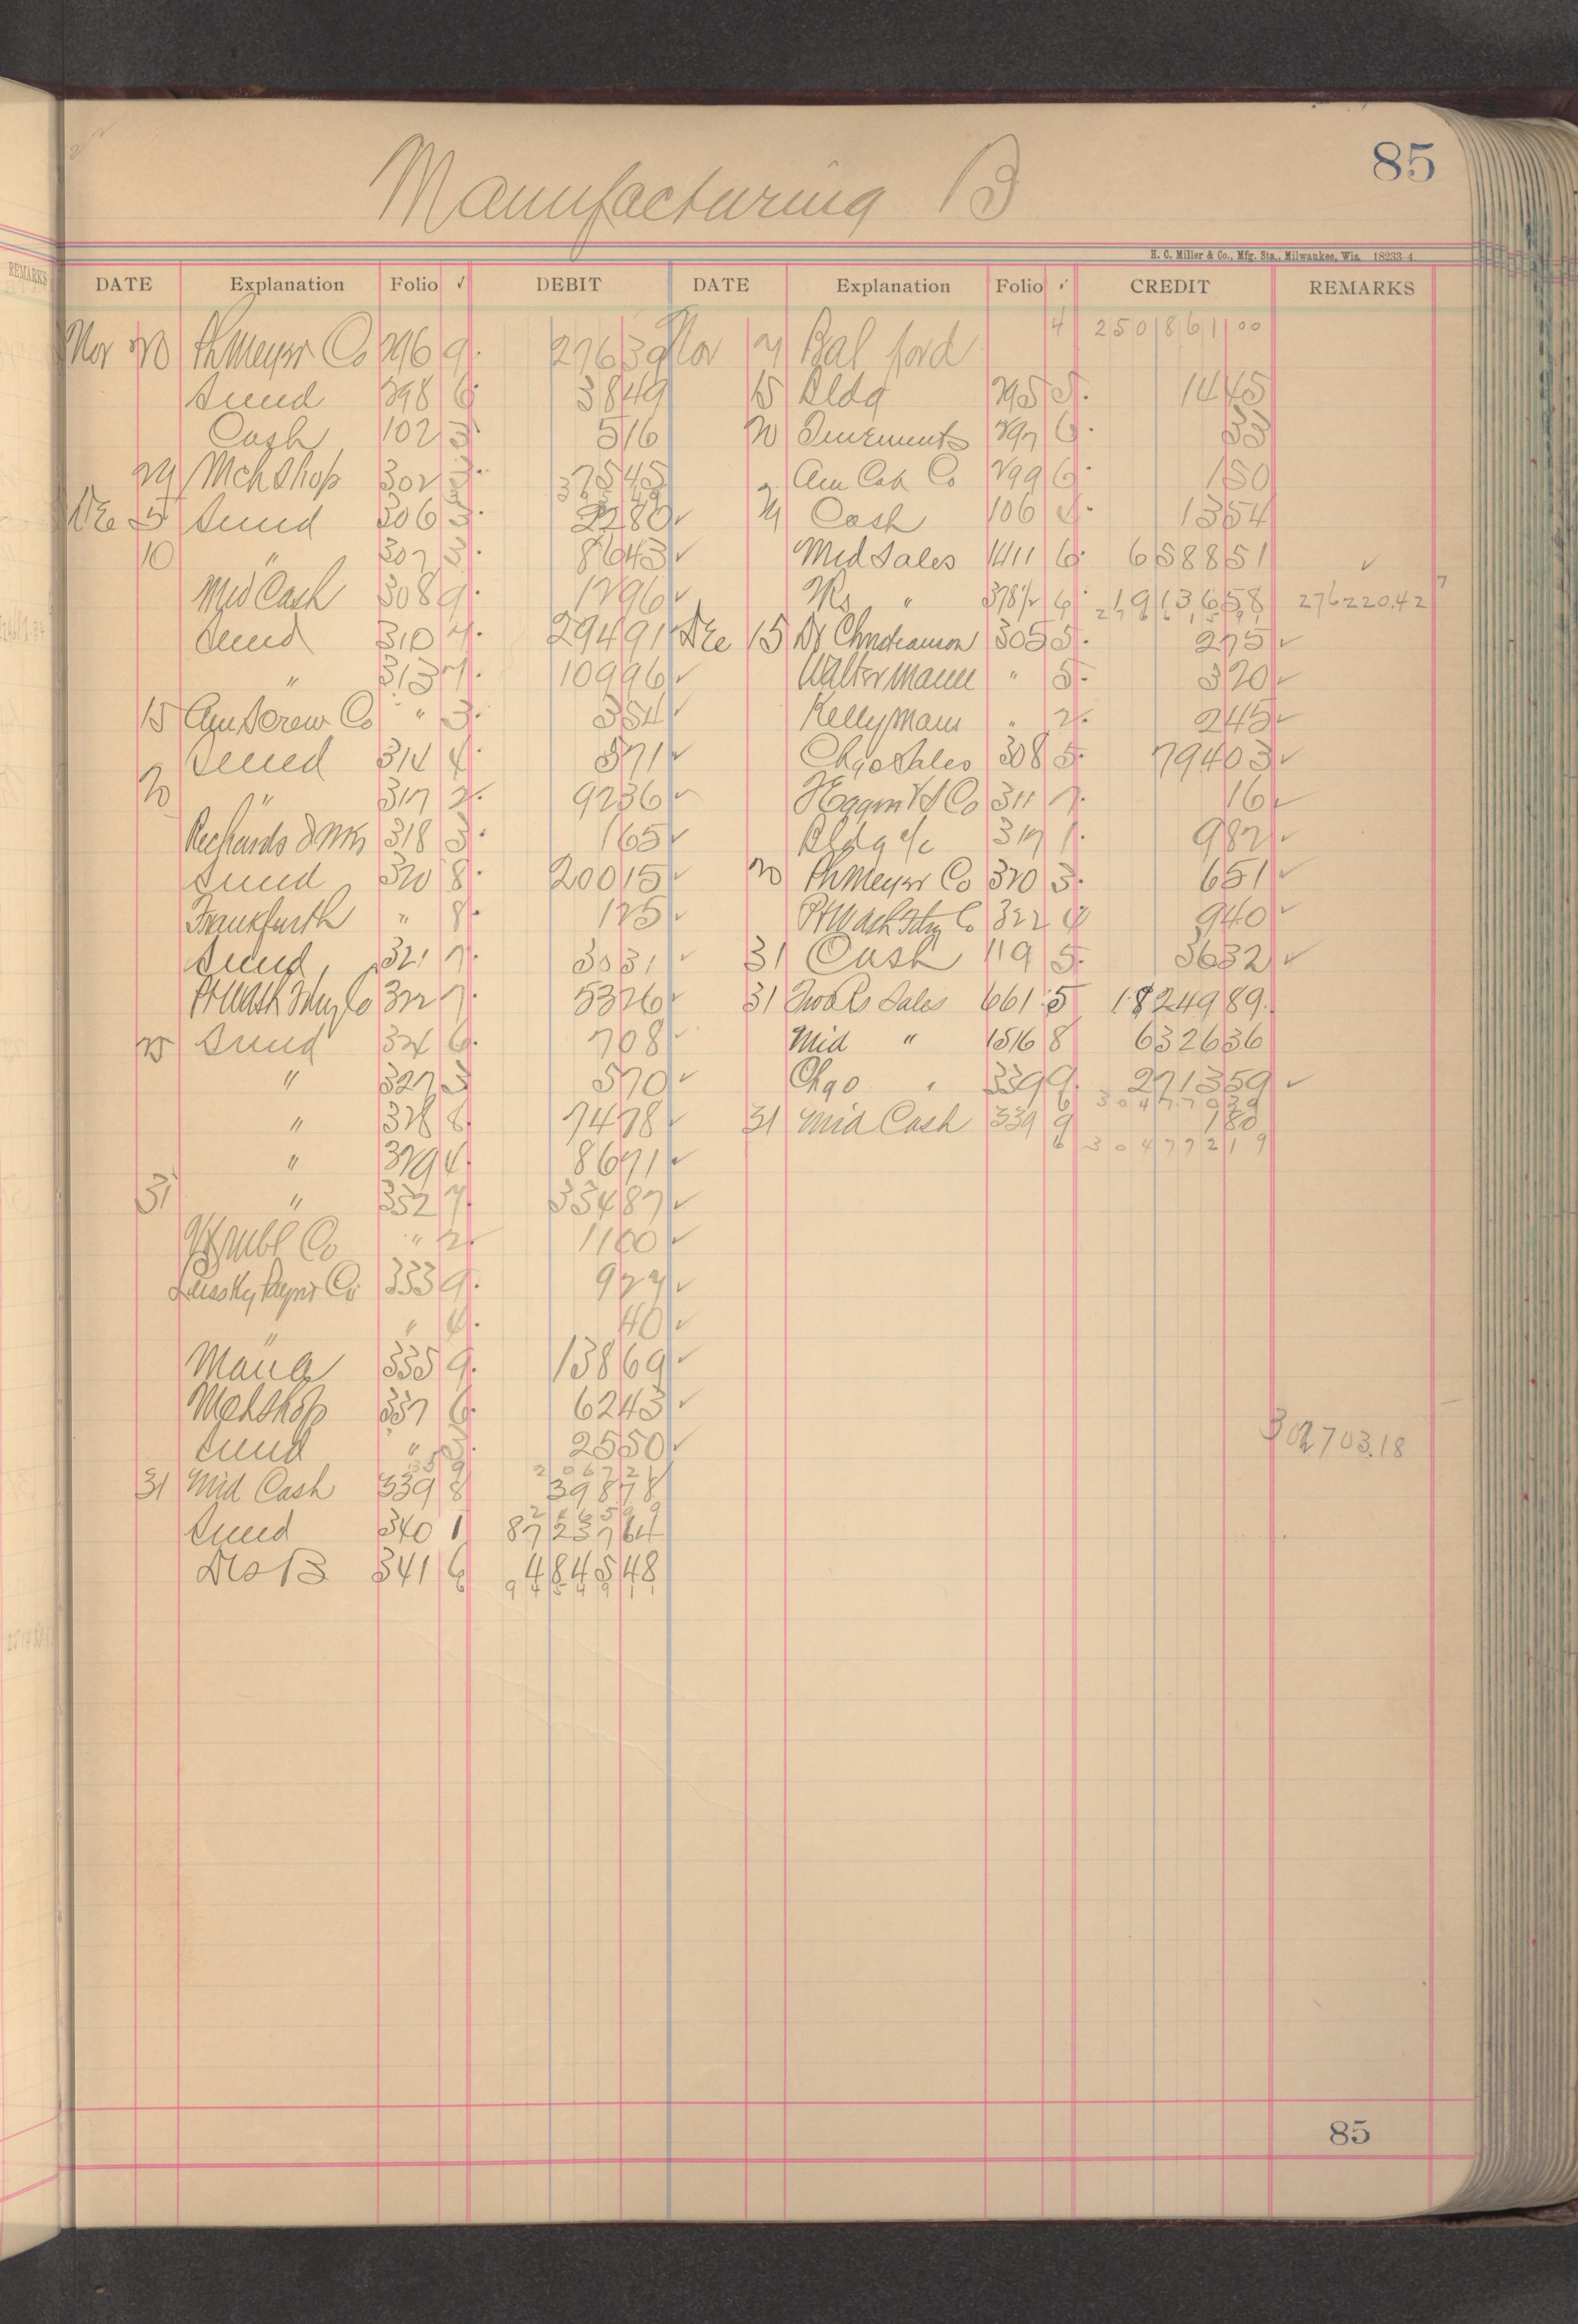 85
Manufacturing B
H. C. Miller & Co., Mfg. Sta., Milwaukee, Wis. 18233-4
REMARKS
DATE Explanation Folio ✓ DEBIT DATE Explanation Folio ✓ CREDIT REMARKS
4 250861 00
Nov 20 Ph Meyer Co 296 9 27639 Nov 21 Bal ford
Sund 298 6 3849 15 Bldg 295 5 1445
Cash 102 3 516 20 297 6 33
29 Mch Shop 302 3 37545 Am Co 299 6 150
Dec 5 Sund 306 3 2280 ✓ 29 Cash 106 4 1354
10 " 307 3 8643 ✓ Mid Sales 1411 6 658851 ✓
Mid Cash 308 9 1296 ✓ 2Rs " 378½ 6 1913658 276220.42
Sund 310 7 29491 ✓ Dec 15 Christianson 305 5 275 ✓
" 313 7 10996 ✓ Walter Mann " 5 320 ✓
15 Am Screw Co " 3 354 ✓ Kelly Maus " 2 245 ✓
Sund 314 4 571 ✓ Chgo Sales 308 5 79403 ✓
20 " 317 2 9236 ✓ Co 311 7 16 ✓
Richards & 318 3 165 ✓ Bldg a/c 317 1 982 ✓
Sund 320 8 20015 ✓ 20 Ph Meyer Co 320 3 651 ✓
Frankfurth " 8 125 ✓ Pt Wash Co 322 4 940 ✓
Sund 321 7 3031 ✓ 31 Cash 119 5 3632 ✓
Pt Wash Co 322 7 5326 ✓ 31 Two Rs Sales 661 5 1824989
25 Sund 324 6 708 ✓ Mid " 1516 8 632636
" 327 3 570 ✓ Chgo " 339 9 271359 ✓
6 30477039
" 328 8 7478 ✓ 31 Mid Cash 339 9 180
6 30477219
" 329 4 8671 ✓
31 " 332 7 33487 ✓
Co " 2 1100 ✓
Co 333 9 927 ✓
" " 4 40 ✓
335 9 13869 ✓
Mch Shop 337 6 6243 ✓
302703.18
Sund " 2550 ✓
206721
31 Mid Cash 339 8 39878
246599
Sund 340 1 8723764
341 6 484548
6 9454911
85